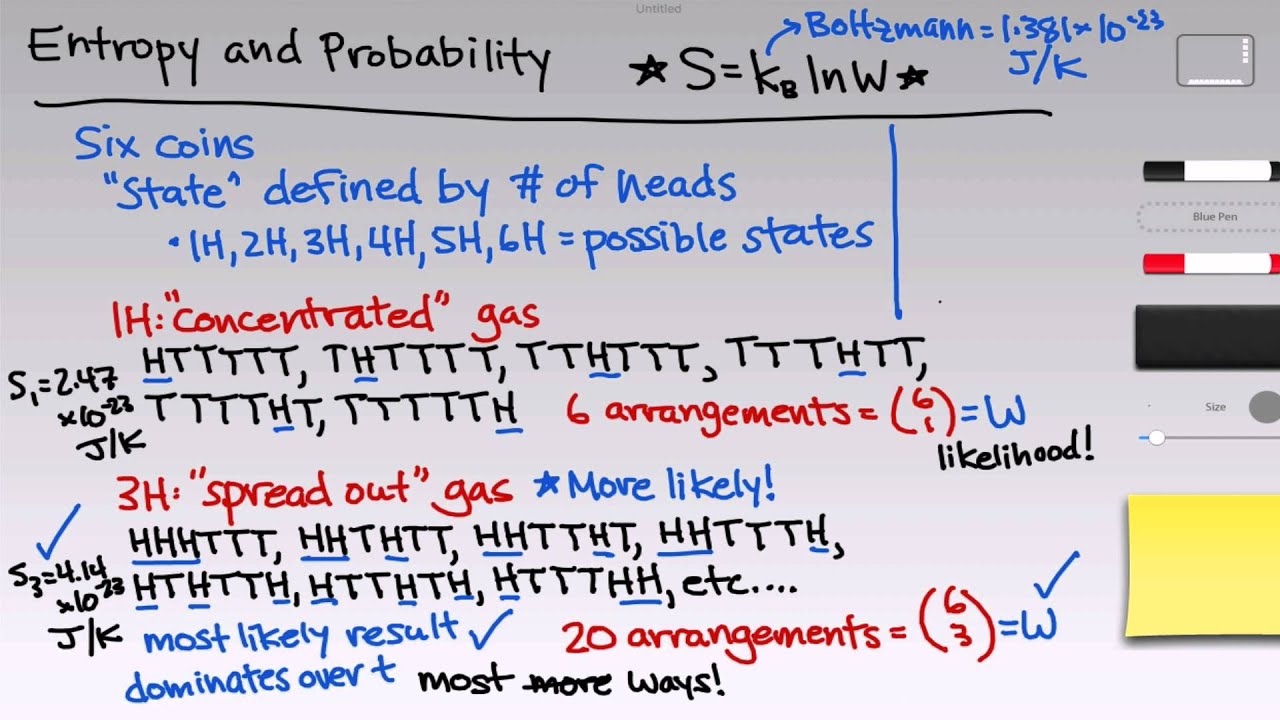 Untitled
Entropy and Probability
★ S = k_B ln W ★
→ Boltzmann = 1.381 × 10^-23
J/K
Six coins
"State" defined by # of heads
• 1H, 2H, 3H, 4H, 5H, 6H = possible states
Blue Pen
Size
1H: "concentrated" gas
HTTTTT, THTTTT, TTHTTT, TTTHTT,
S₁ = 2.47
× 10^-23
J/K
TTTTHT, TTTTTH
6 arrangements = (6 1) = W
likelihood!
3H: "spread out" gas ★ More likely!
HHHTTT, HHTHTT, HHTTHT, HHTTTH,
S₃ = 4.14
× 10^-23
J/K
HTHTTH, HTTHTH, HTTTHH, etc....
most likely result ✓
dominates over t
20 arrangements = (6 3) = W
most more ways!